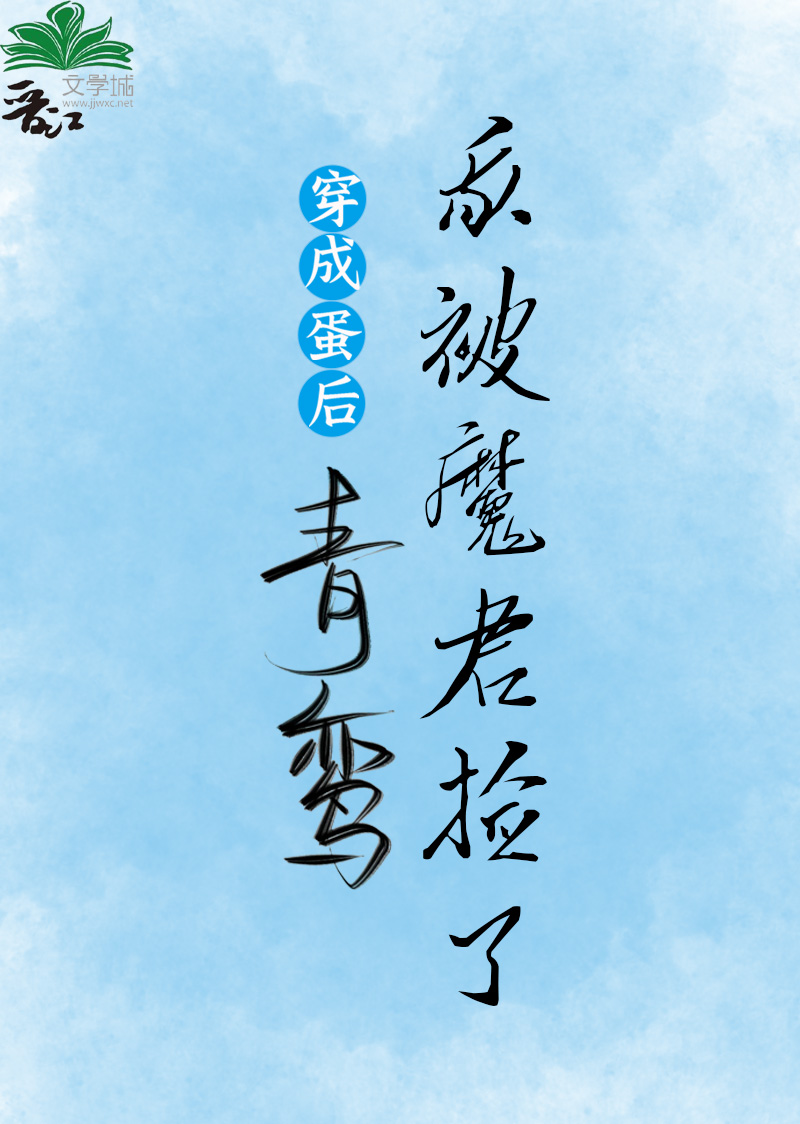 文學城
www.jjwxc.net
晋江
穿成蛋后
我被魔君捡了
青鸾